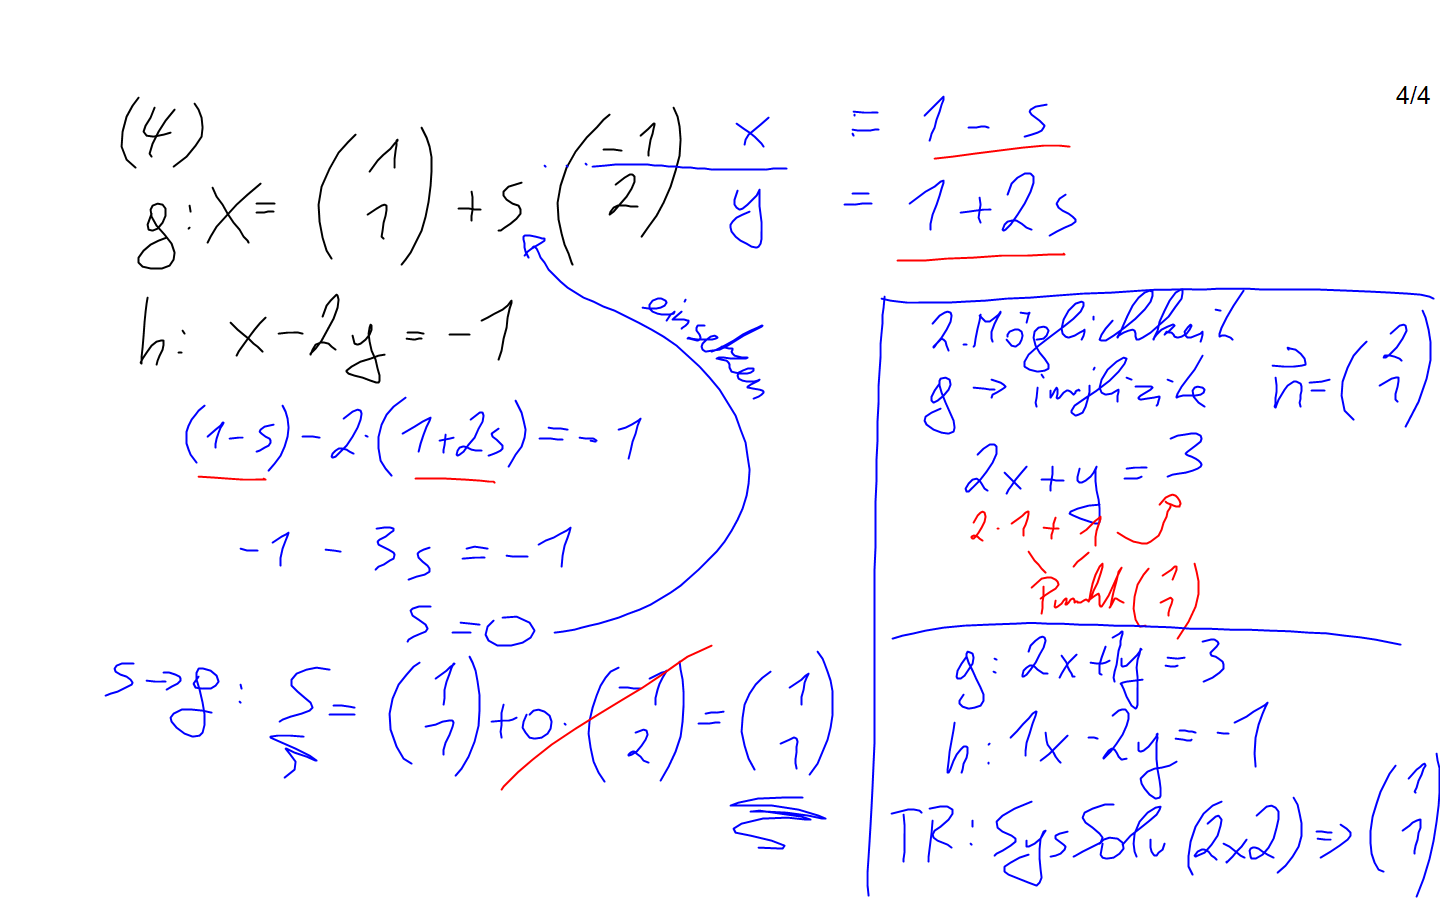 4/4
(4)
g: X = (1 1) + s · (-1 2)
x = 1 - s
y = 1 + 2s
h: x - 2y = -1
einsetzen
(1-s) - 2·(1+2s) = -1
-1 - 3s = -1
s = 0
s → g: S = (1 1) + 0 · (-1 2) = (1 1)
2. Möglichkeit
g → implizite n⃗ = (2 1)
2x + y = 3
2·1 + 1
Punkt (1 1)
g: 2x + 1y = 3
h: 1x - 2y = -1
TR: SysSolv (2x2) => (1 1)